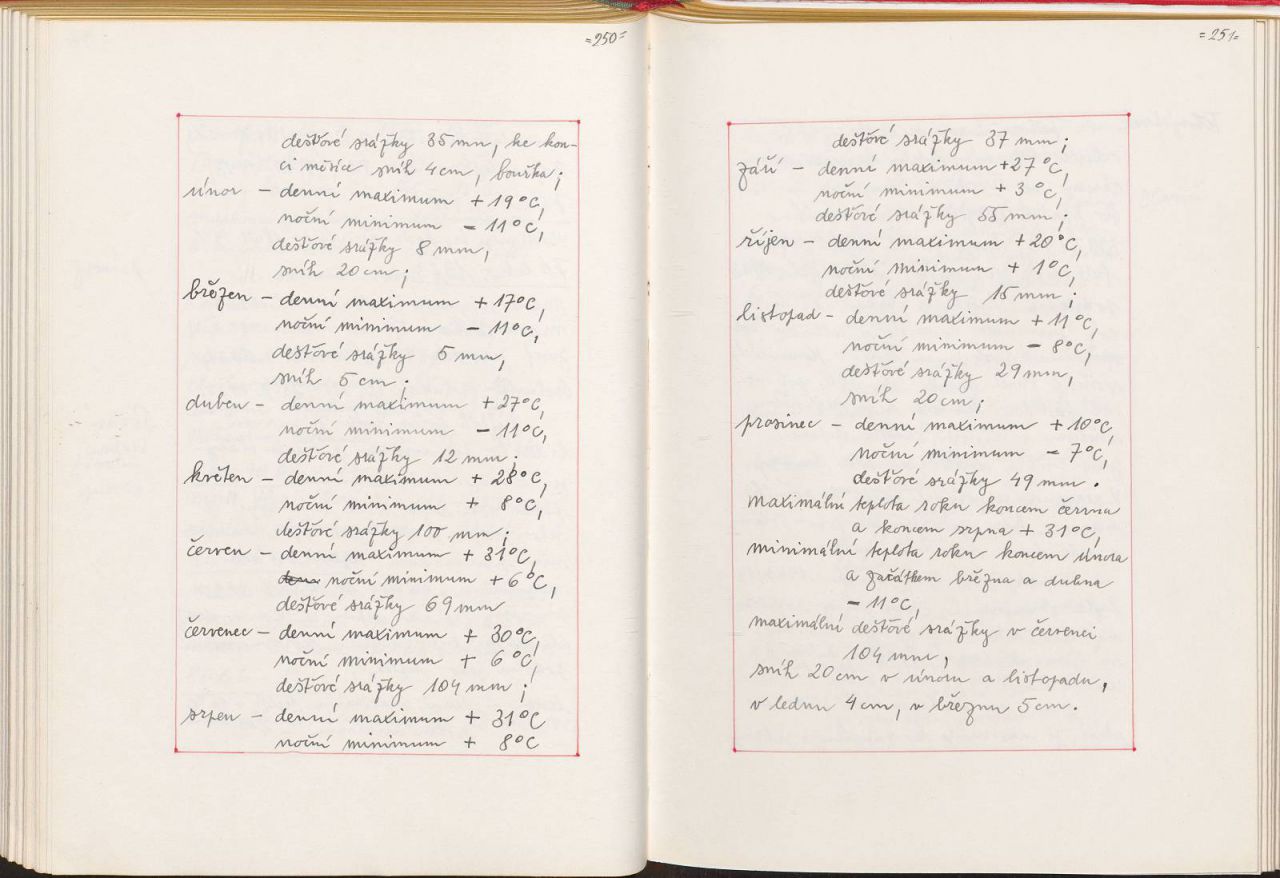 =250=
dešťové srážky 35 mm, ke kon-
ci měsíce sníh 4 cm, bouřka;
únor - denní maximum + 19°C,
noční minimum - 11°C,
dešťové srážky 8 mm,
sníh 20 cm;
březen - denní maximum + 17°C,
noční minimum - 11°C,
dešťové srážky 5 mm,
sníh 5 cm;
duben - denní maximum + 27°C,
noční minimum - 11°C,
dešťové srážky 12 mm;
květen - denní maximum + 28°C,
noční minimum + 8°C,
dešťové srážky 100 mm;
červen - denní maximum + 31°C,
noční minimum + 6°C,
dešťové srážky 69 mm
červenec - denní maximum + 30°C,
noční minimum + 6°C,
dešťové srážky 104 mm;
srpen - denní maximum + 31°C
noční minimum + 8°C
=251=
dešťové srážky 37 mm;
září - denní maximum +27°C,
noční minimum + 3°C,
dešťové srážky 55 mm;
říjen - denní maximum + 20°C,
noční minimum + 1°C,
dešťové srážky 15 mm;
listopad - denní maximum + 11°C,
noční minimum - 8°C,
dešťové srážky 29 mm,
sníh 20 cm;
prosinec - denní maximum + 10°C,
noční minimum - 7°C,
dešťové srážky 49 mm.
maximální teplota roku koncem června
a koncem srpna + 31°C,
minimální teplota roku koncem února
a začátkem března a dubna
- 11°C,
maximální dešťové srážky v červenci
104 mm,
sníh 20 cm v únoru a listopadu,
v lednu 4 cm, v březnu 5 cm.